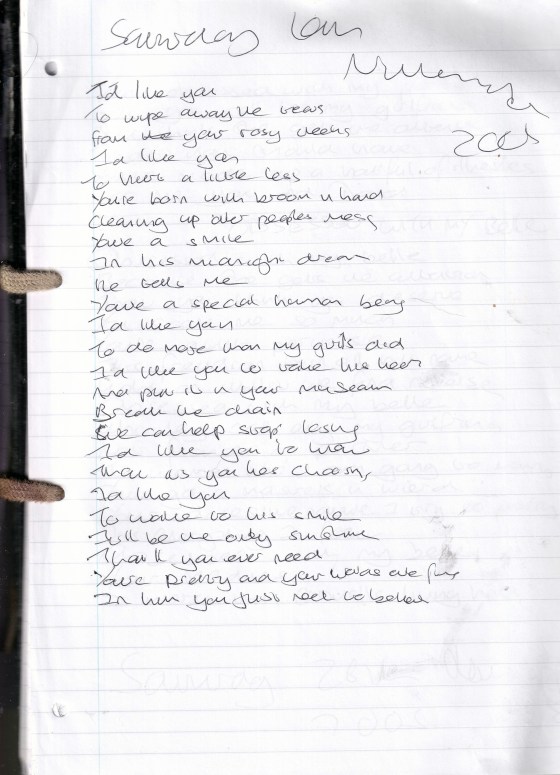 Saturday
2005
I'd like you
To wipe away the tears
from the your rosy cheeks
I'd like you
To hurt a little less
You're born with broom n hand
Cleaning up other peoples mess
You're a smile
In his midnight dream
He tells me
You're a special human being
I'd like you
To do more than my gurls did
I'd like you to take his heart
And put it in your museum
Break the chain
can help stop losing
I'd like you to know
That its you he's choosing
I'd like you
To wake to his smile
It'll be the only sunshine
That'll you ever need
You're pretty and your words are
In him you just need to believe